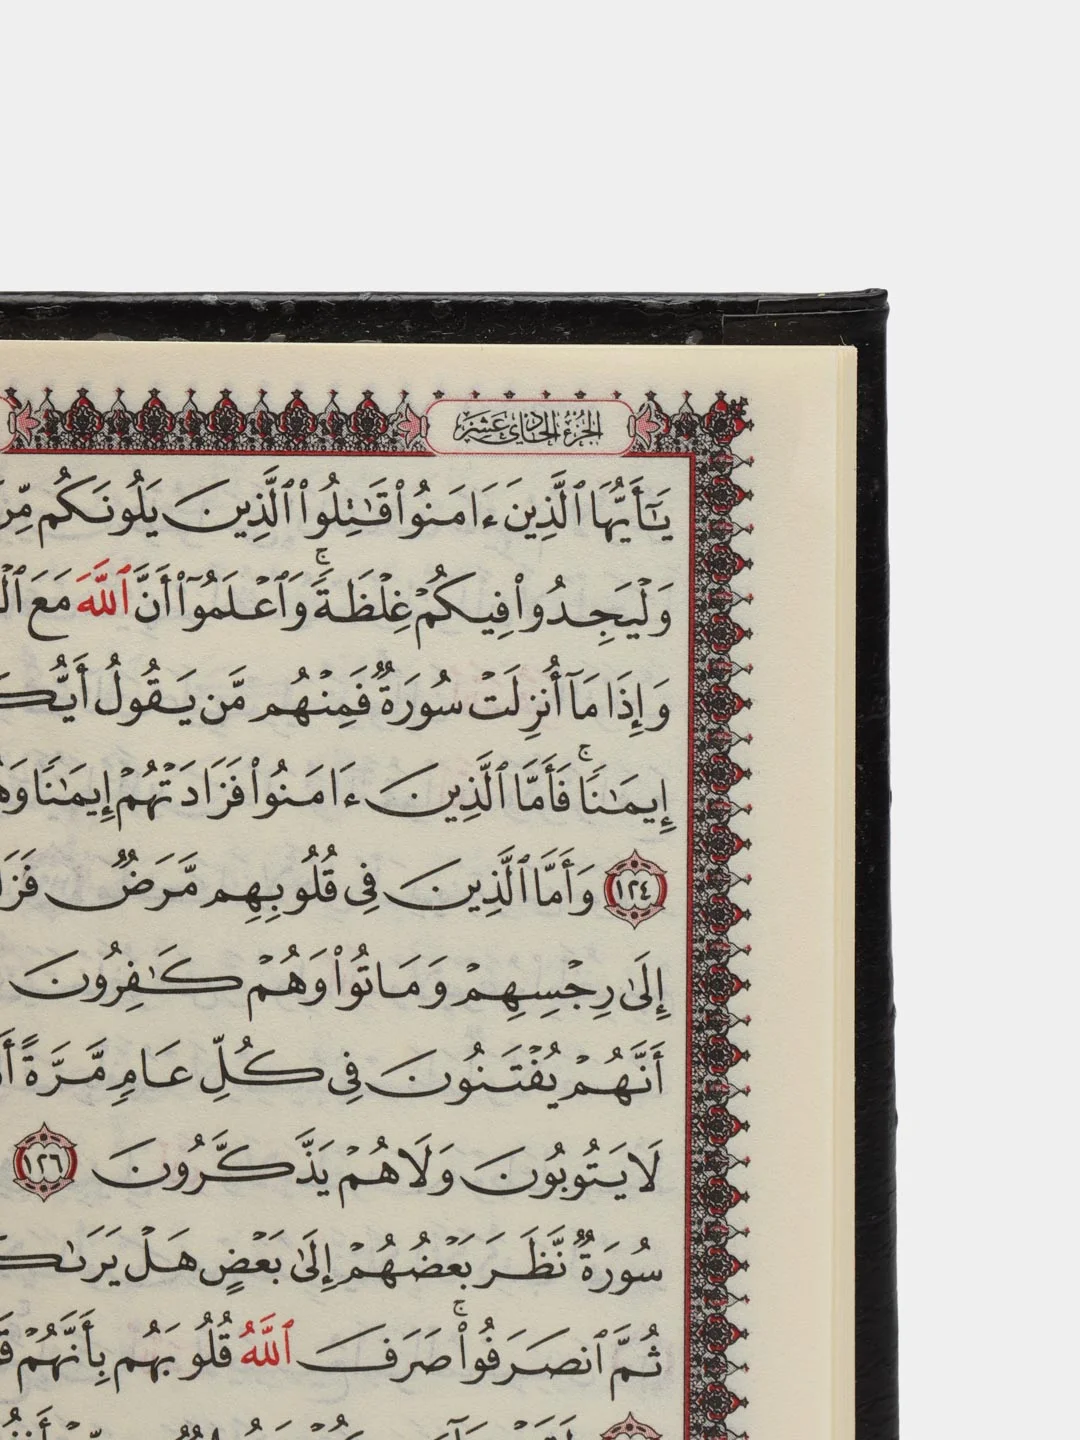 الجزء الحادي عشر
يَٰٓأَيُّهَا ٱلَّذِينَ ءَامَنُوا۟ قَٰتِلُوا۟ ٱلَّذِينَ يَلُونَكُم
وَلْيَجِدُوا۟ فِيكُمْ غِلْظَةً ۚ وَٱعْلَمُوٓا۟ أَنَّ ٱللَّهَ مَعَ
وَإِذَا مَآ أُنزِلَتْ سُورَةٌ فَمِنْهُم مَّن يَقُولُ
إِيمَٰنًا ۚ فَأَمَّا ٱلَّذِينَ ءَامَنُوا۟ فَزَادَتْهُمْ إِيمَٰنًا
١٢٤ وَأَمَّا ٱلَّذِينَ فِى قُلُوبِهِم مَّرَضٌ
إِلَىٰ رِجْسِهِمْ وَمَاتُوا۟ وَهُمْ كَٰفِرُونَ
أَنَّهُمْ يُفْتَنُونَ فِى كُلِّ عَامٍ مَّرَّةً
لَا يَتُوبُونَ وَلَا هُمْ يَذَّكَّرُونَ ١٢٦
سُورَةٌ نَّظَرَ بَعْضُهُمْ إِلَىٰ بَعْضٍ هَلْ
ثُمَّ ٱنصَرَفُوا۟ ۚ صَرَفَ ٱللَّهُ قُلُوبَهُم بِأَنَّهُمْ